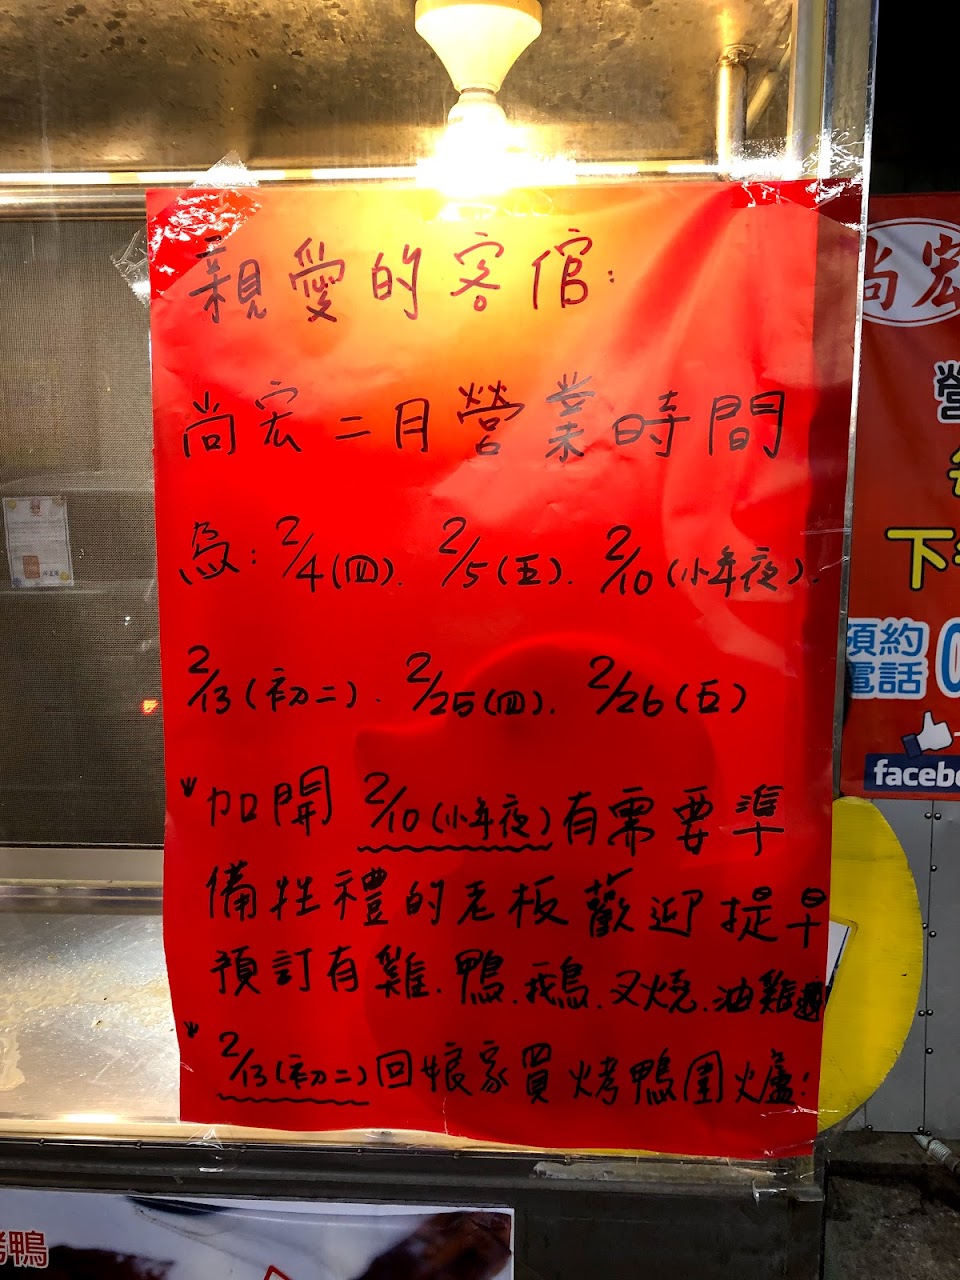 親愛的客倌:
尚宏二月營業時間
為: 2/4(四). 2/5(五). 2/10(小年夜).
2/13(初二). 2/25(四). 2/26(五)
加開 2/10(小年夜)有需要準
備牲禮的老板歡迎提早
預訂有雞.鴨.鵝.叉燒.油雞
2/13(初二)回娘家買烤鴨圍爐!
尚宏
營
下
預約
電話
0
facebo
鴨